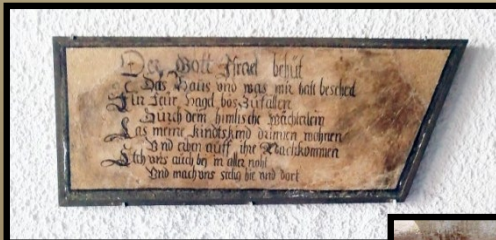 Der Gott Israel behüt
Das Haus vnd was mir hatt bescheid
Für Feür, Hagel bös Zufällen
Durch dein himlische
Las meine Kindtskind drinnen wohnen
Vnd eben auff ihr Nachkommen
Steh vns auch bey in aller noht
Vnd mach vns selig hie vnd dort